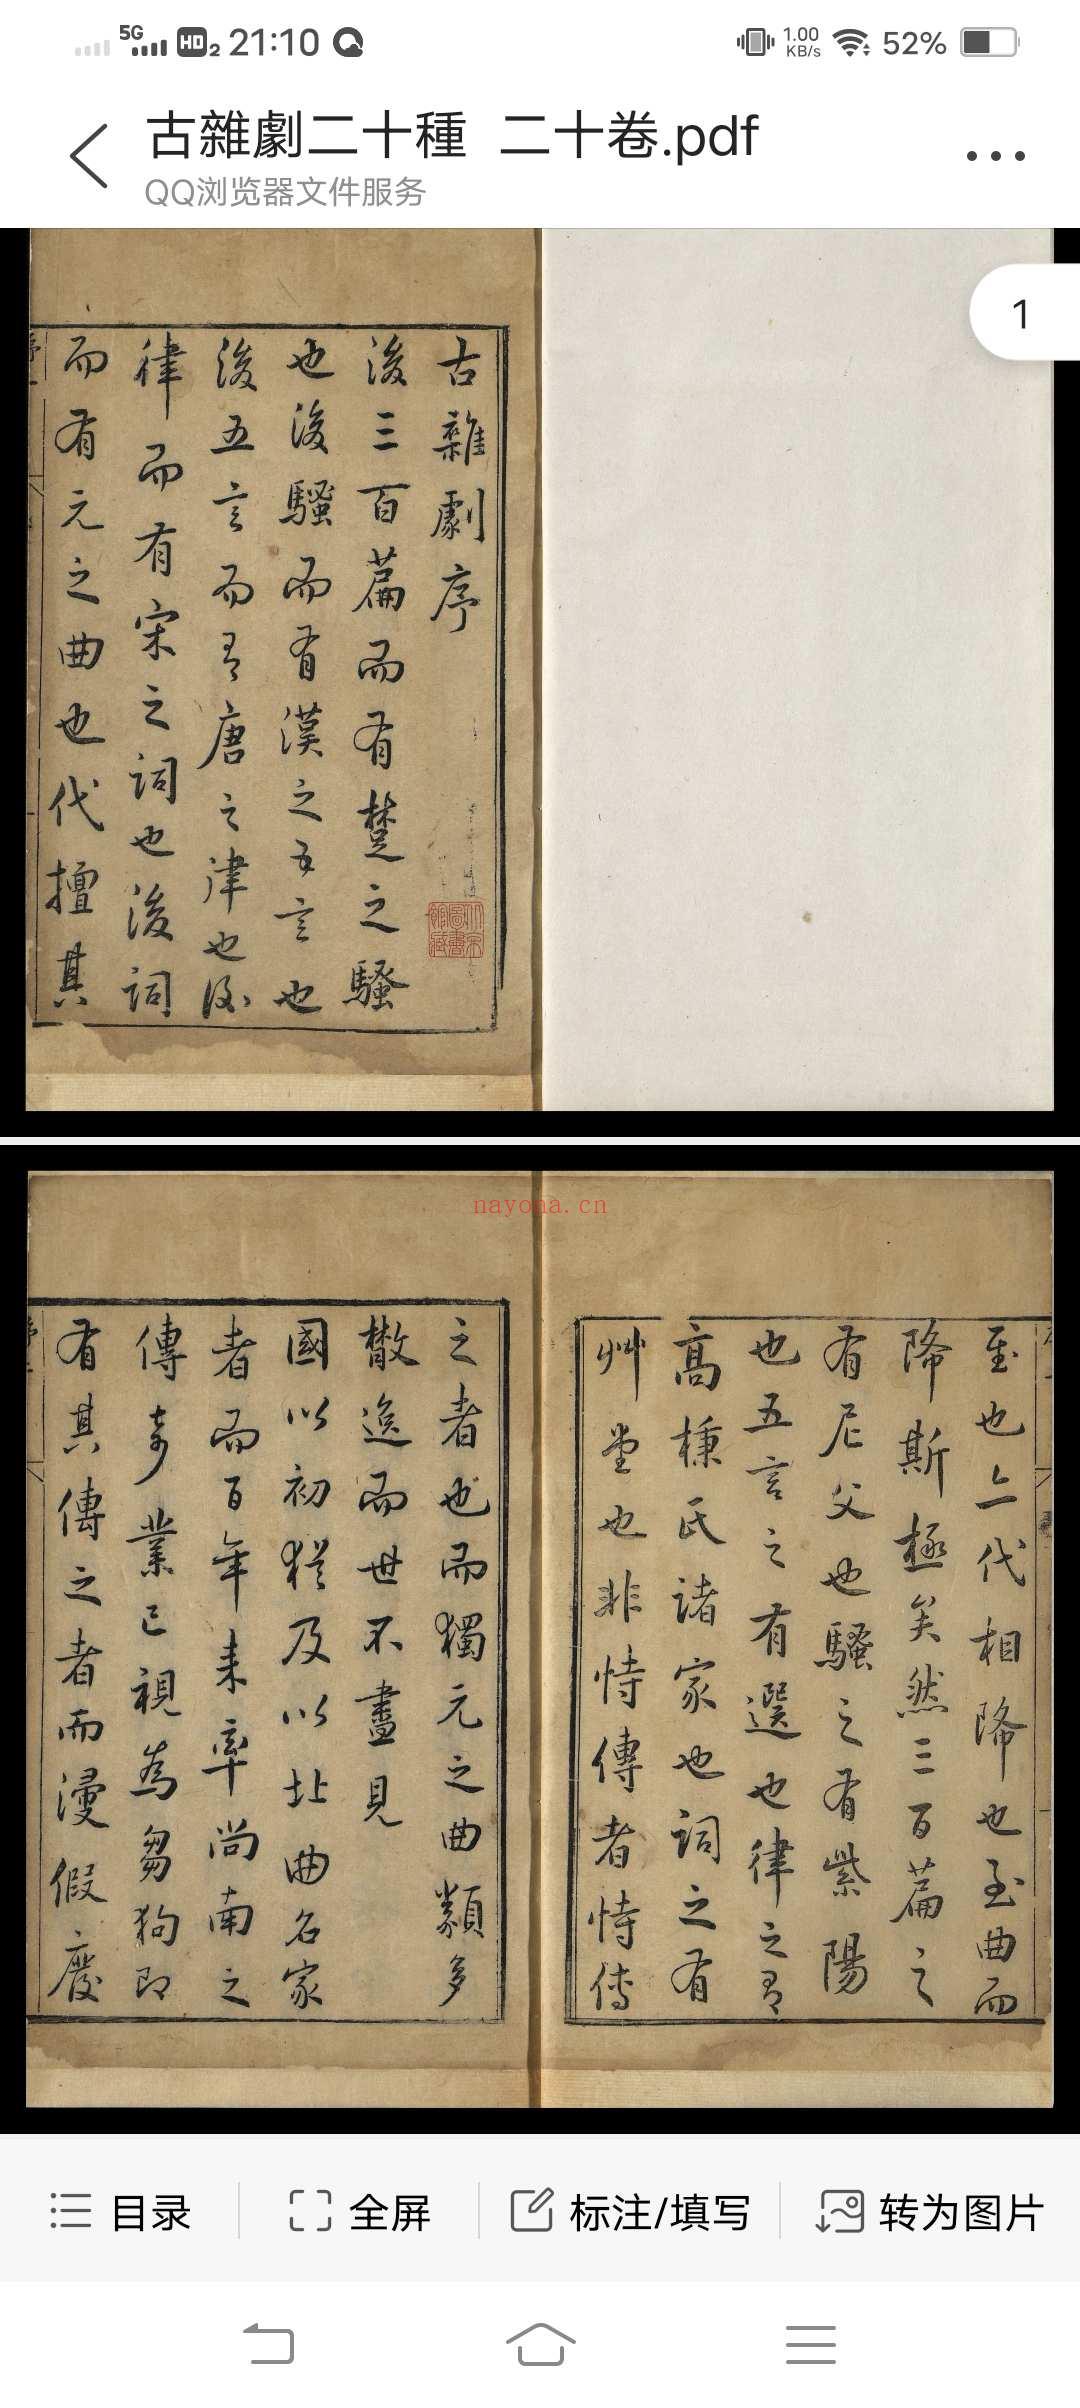 5G HD2 21:10 1.00 KB/s 52%
古雜劇二十種 二十卷.pdf
QQ浏览器文件服务
1
古雜劇序
後三百篇而有楚之騷
也後騷而有漢之五言也
後五言而有唐之律也後
律而有宋之詞也後詞
而有元之曲也代擅其
nayona.cn
至也亦代相降也至曲而
降斯極矣然三百篇之
有尼父也騷之有紫陽
也五言之有選也律之有
高棅氏諸家也詞之有
艸堂也非恃傳者恃傳
之者也而獨元之曲類多
散逸而世不盡見
國以初猶及以北曲名家
者而百年来率尚南之
傳奇業已視為芻狗即
有其傳之者而漫假廢
目录 全屏 标注/填写 转为图片